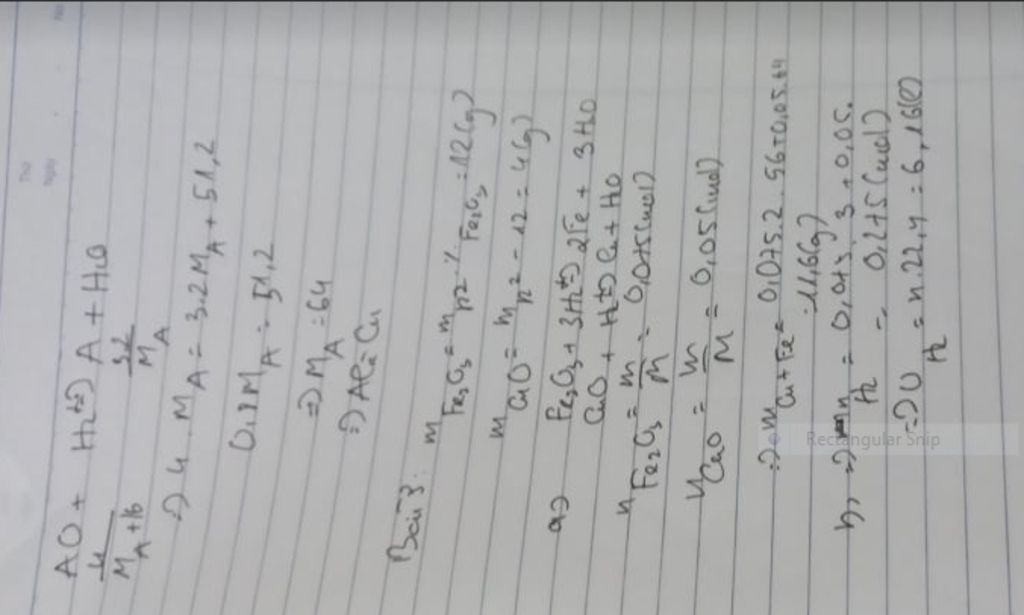 AO + H₂ →(t°) A + H₂O
4/(M_A + 16)   3,2/M_A
⇒ 4 . M_A = 3,2 M_A + 51,2
0,8 M_A = 51,2
⇒ M_A = 64
⇒ A là Cu
Bài 3: m Fe₂O₃ = m h² . % Fe₂O₃ = 12 (g)
m CuO = m h² - 12 = 4 (g)
a) Fe₂O₃ + 3H₂ →(t°) 2Fe + 3H₂O
CuO + H₂ →(t°) Cu + H₂O
n Fe₂O₃ = m/M = 0,075 (mol)
n CuO = m/M = 0,05 (mol)
⇒ m Cu + Fe = 0,075.2 . 56 + 0,05.64
= 11,6 (g)
b, ⇒ n H₂ = 0,075 . 3 + 0,05.
= 0,275 (mol)
⇒ V H₂ = n . 22,4 = 6,16 (l)
Thứ
Ngày
No
Rectangular Snip